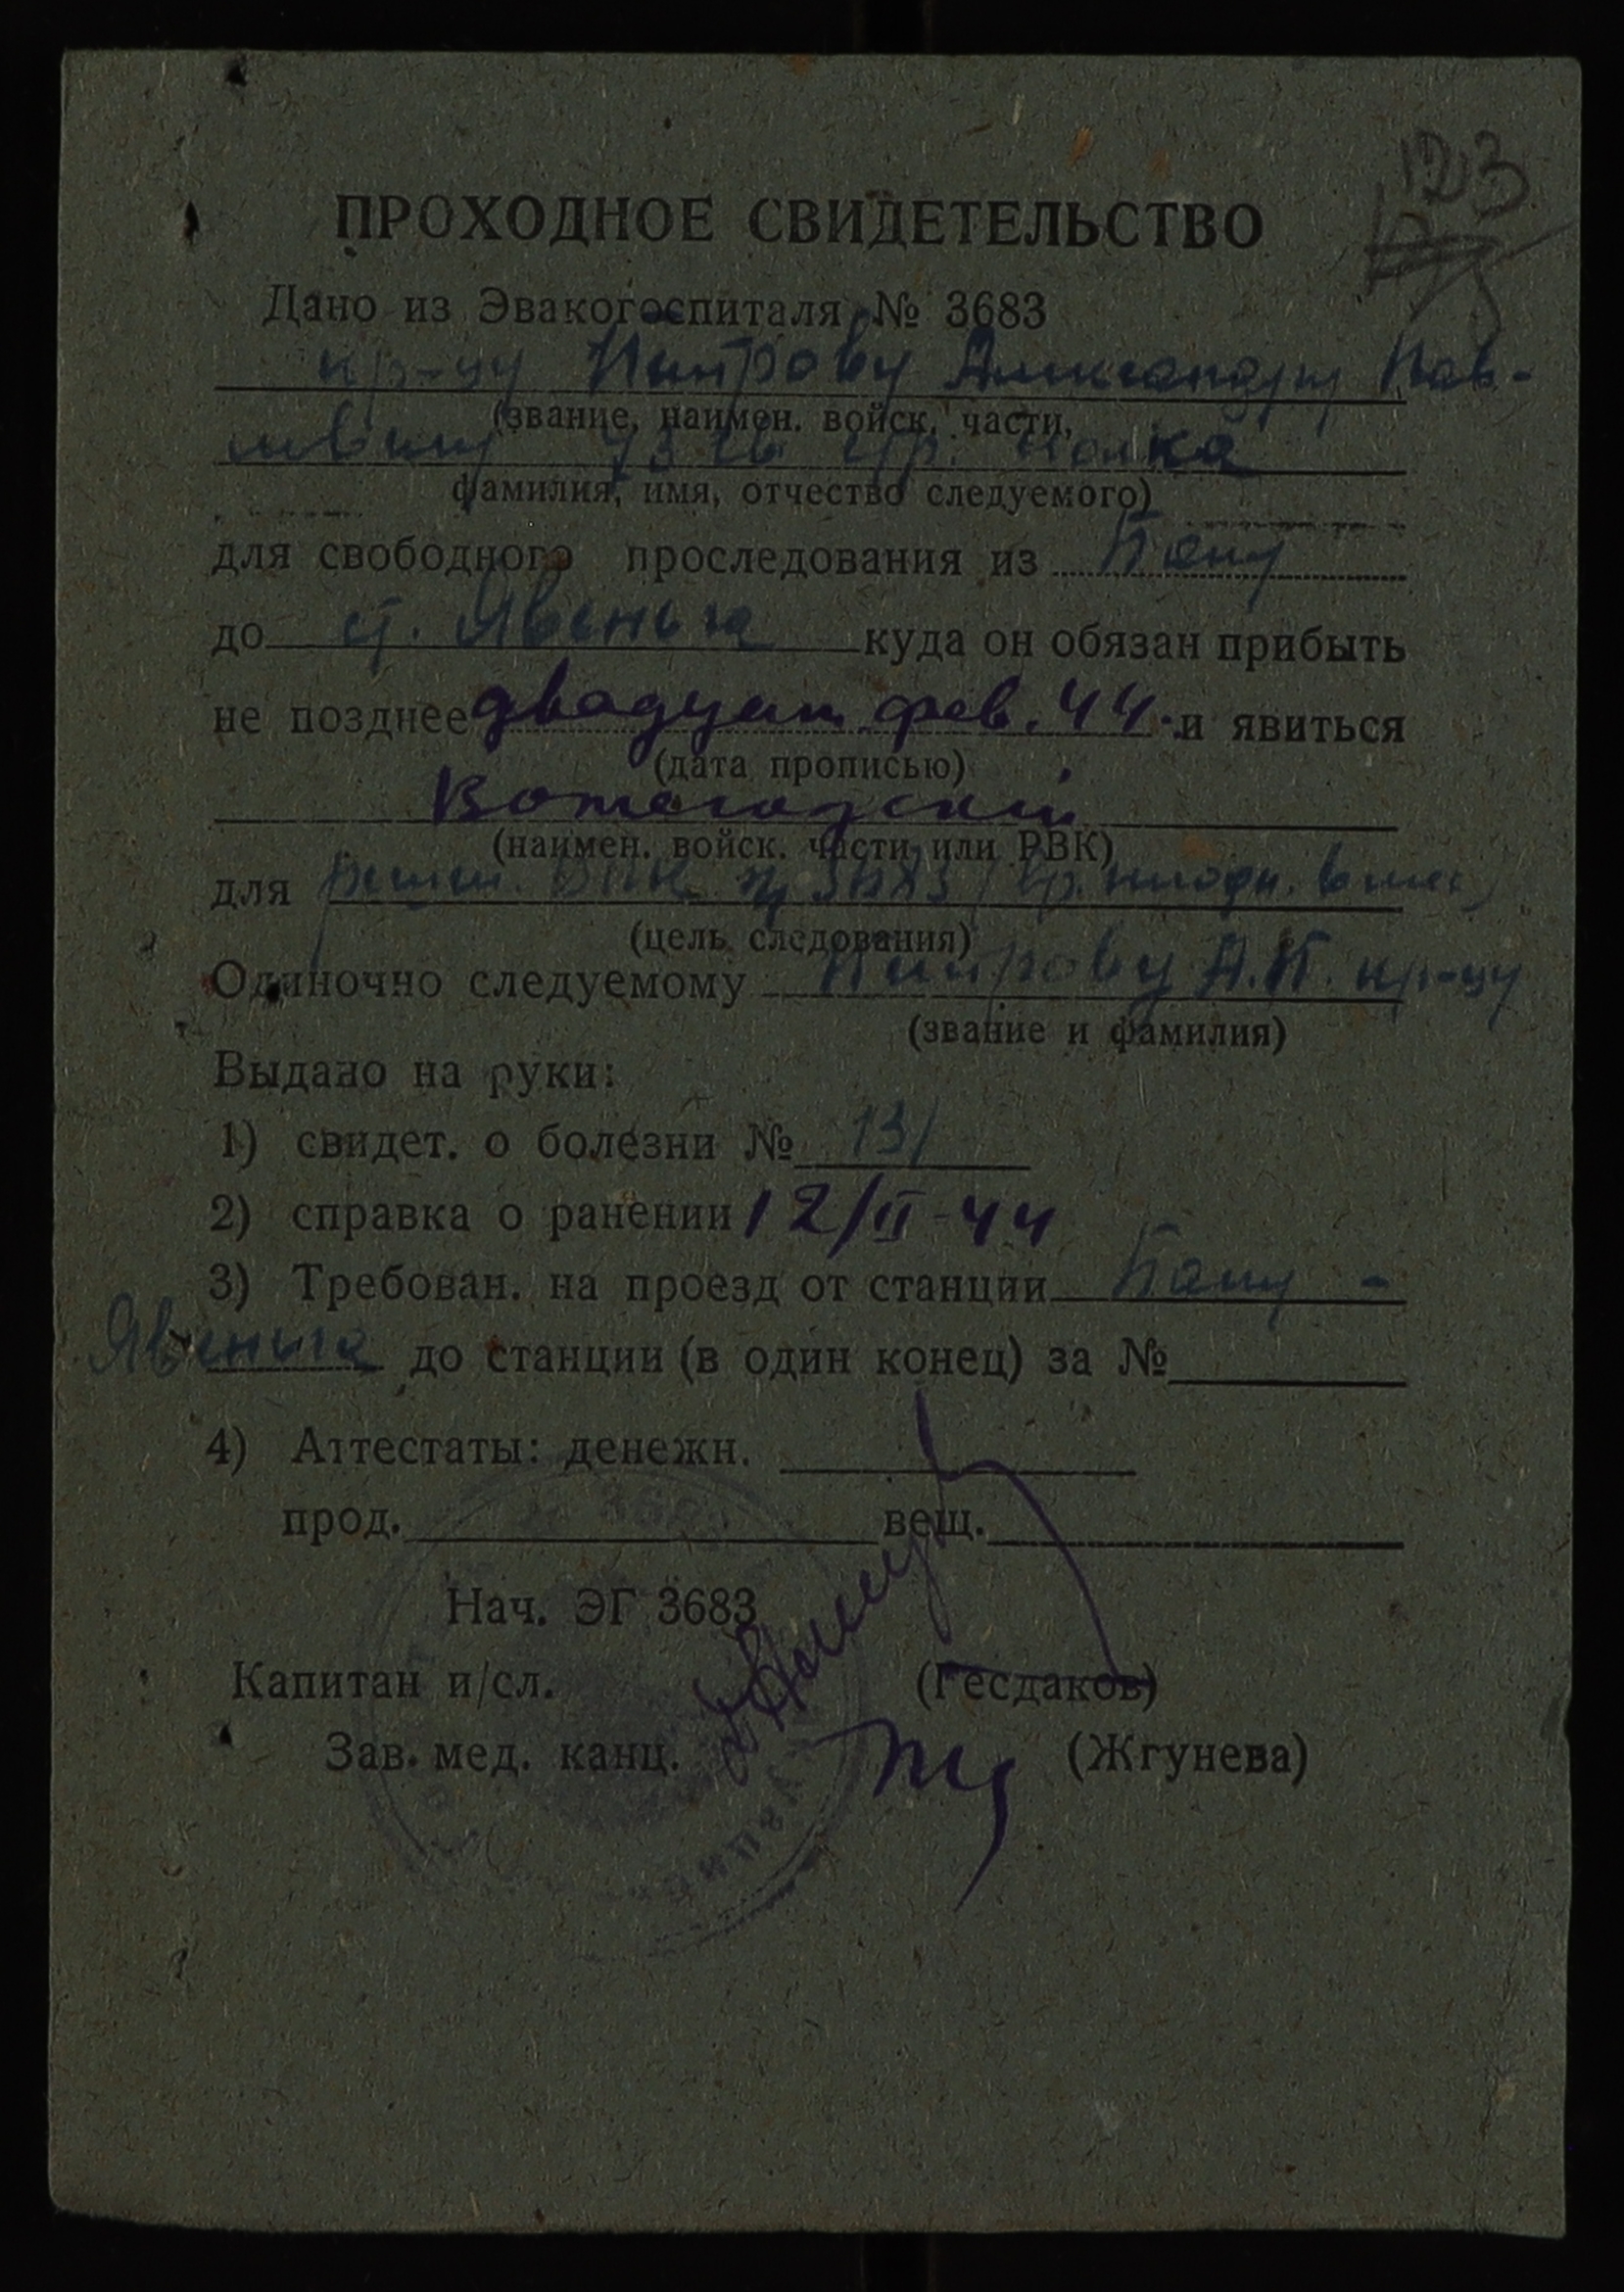 123
ПРОХОДНОЕ СВИДЕТЕЛЬСТВО
Дано из Эвакогоспиталя № 3683
кр-цу Петрову Александру Пав-
(звание, наимен. войск. части,
ловичу стр. полка
фамилия, имя, отчество следуемого)
для свободного проследования из Пашу
до ст. Явеньга куда он обязан прибыть
не позднее двадцат фев. 44. и явиться
(дата прописью)
Вожегодский
(наимен. войск. части или РВК)
для решен. ВПК ЭГ 3683 (вр.
(цель следования)
Одиночно следуемому Петрову А.П. кр-цу
(звание и фамилия)
Выдано на руки:
1) свидет. о болезни № 131
2) справка о ранении 12/II-44
3) Требован. на проезд от станции Пашу -
Явеньга до станции (в один конец) за №
4) Аттестаты: денежн.
прод. вещ.
Нач. ЭГ 3683
Капитан и/сл. (Гесдаков)
Зав. мед. канц. (Жгунева)